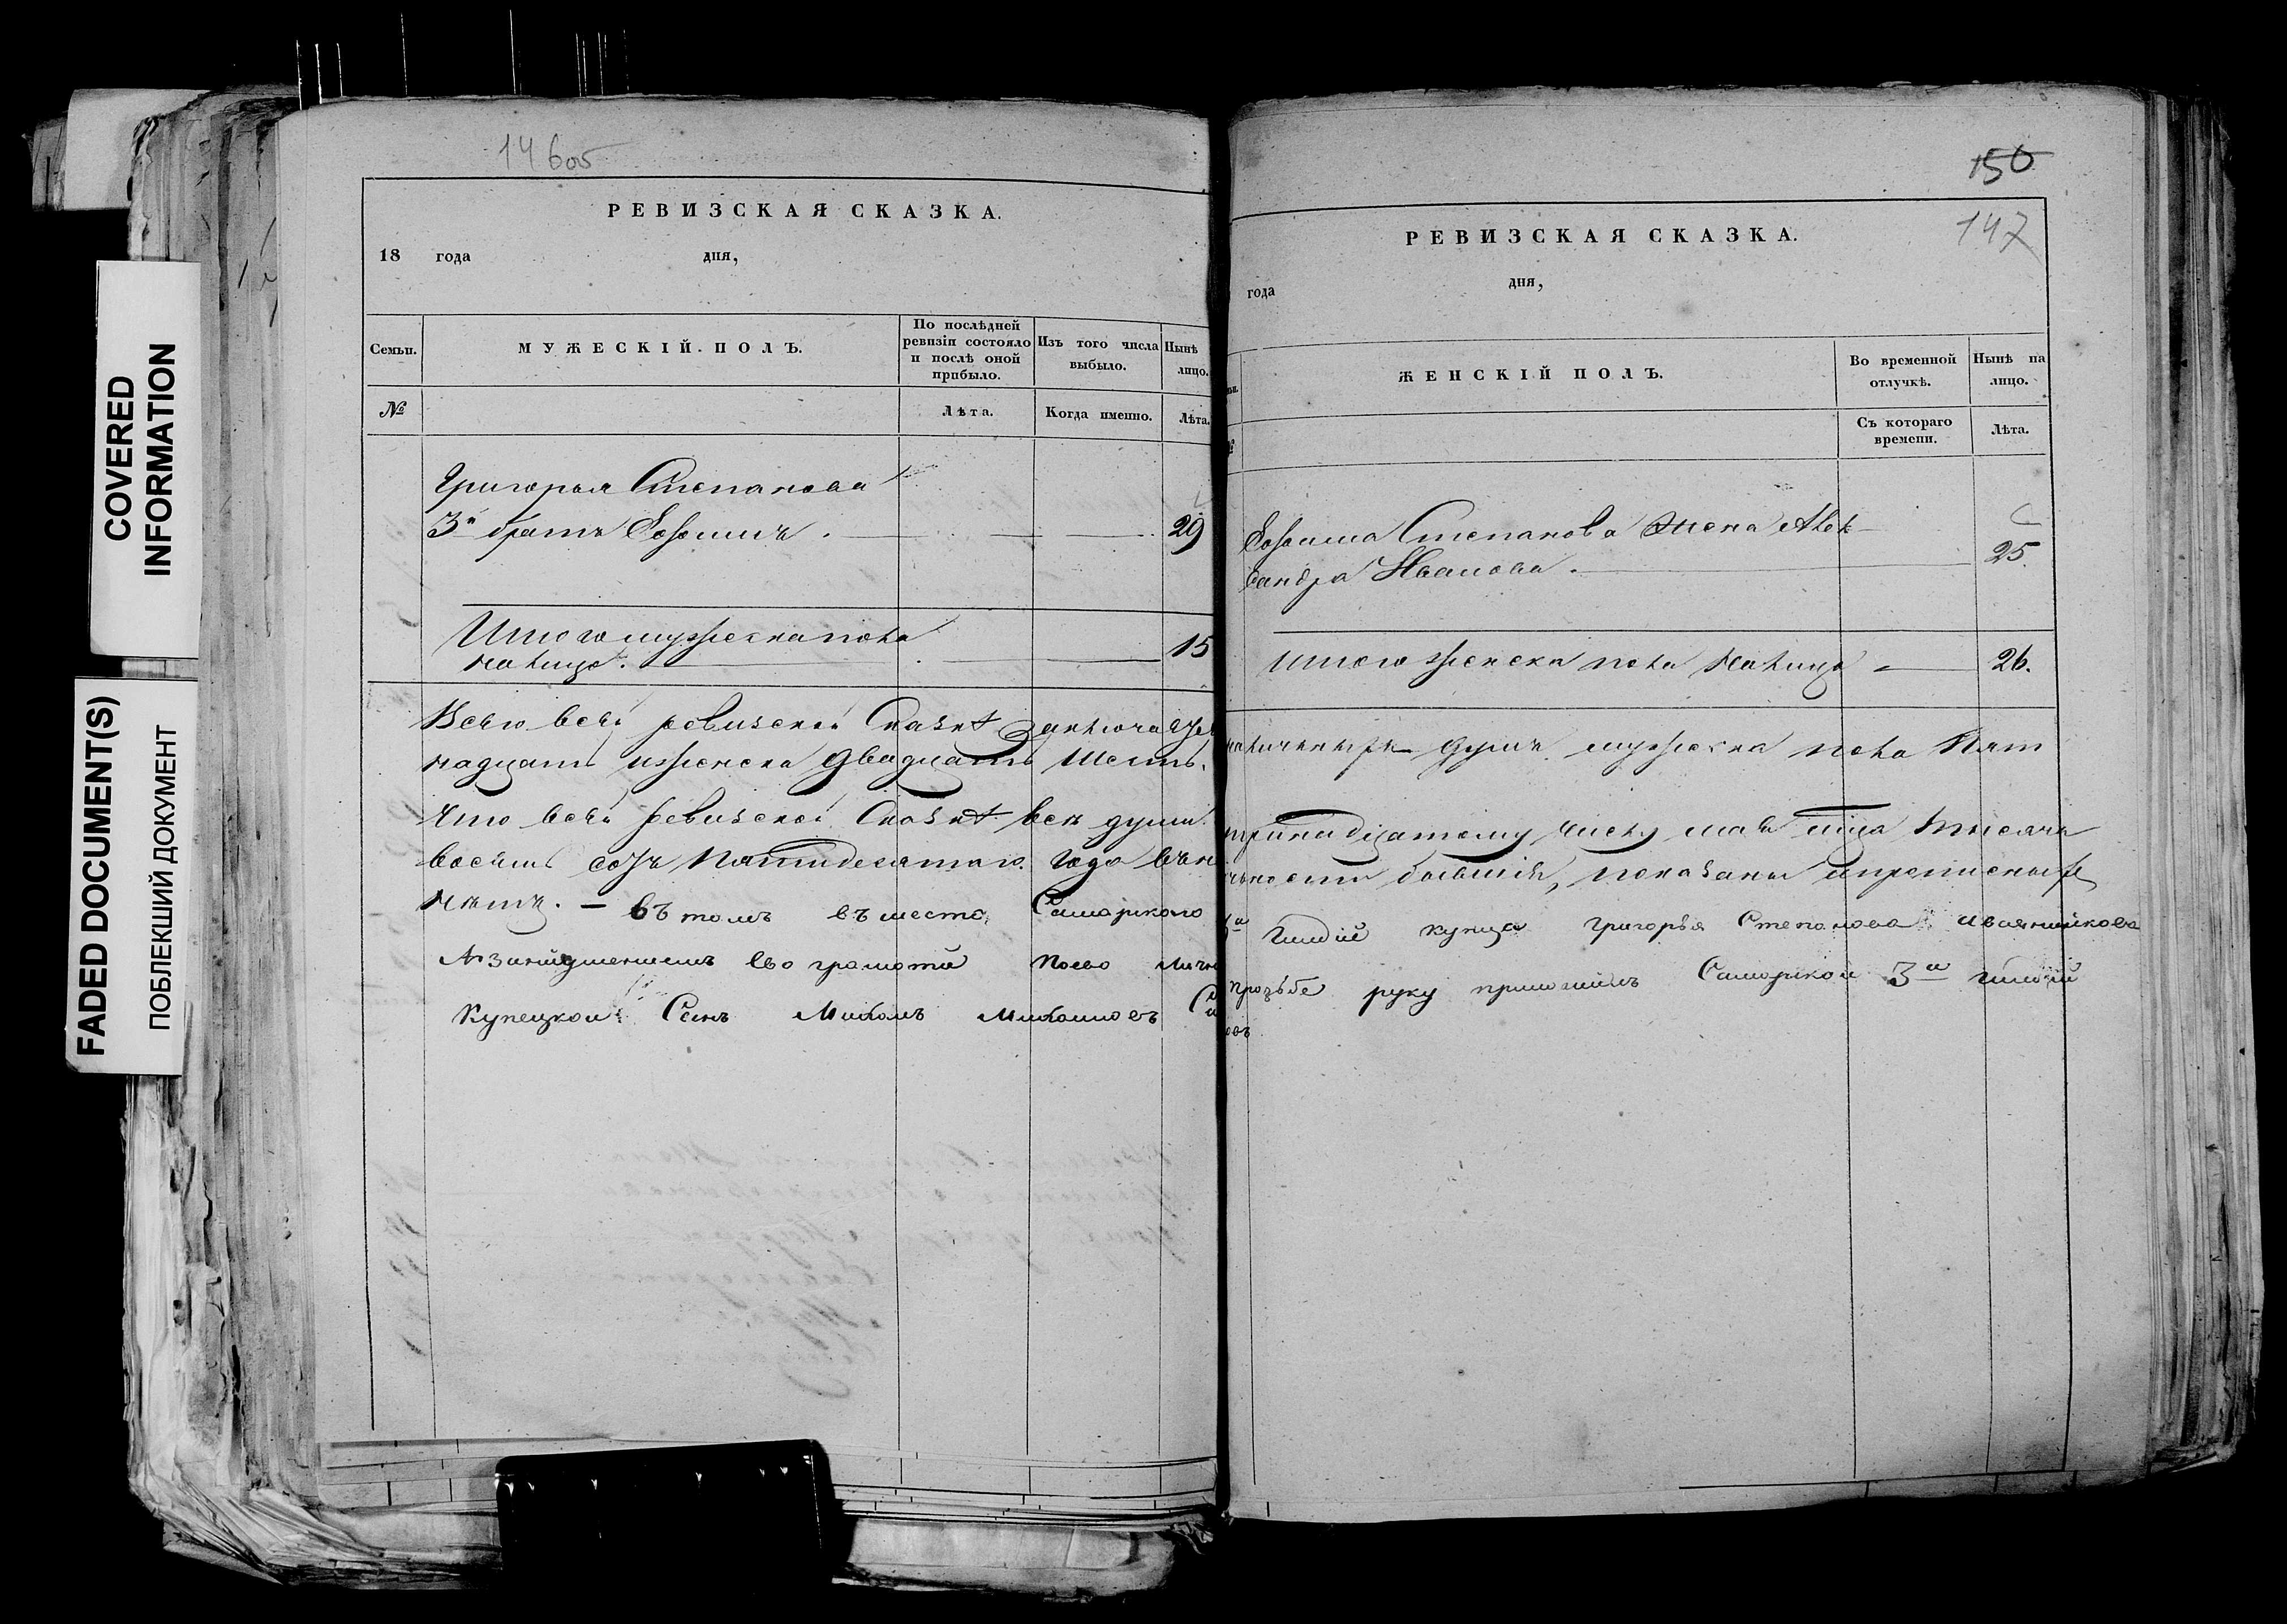 COVERED
INFORMATION
FADED DOCUMENT(S)
ПОБЛЕКШИЙ ДОКУМЕНТ
14 боб
РЕВИЗСКАЯ СКАЗКА.
18 года дня,
Семьи.
МУЖЕСКІЙ. ПОЛЪ.
По послѣдней
ревизіи состояло
и послѣ оной
прибыло.
Изъ того числа
выбыло.
Нынѣ
лицо.
№
Лѣта.
Когда именно.
Лѣта.
Григорья Степанова
3й братъ Зосимъ. 29
Итого мужеска пола 15
налицо.
Всего всей ревизской Сказкѣ
надцать иженска двадцать Шесть.
Что всей ревизской Сказкѣ все души
восемь сотъ Пятидесятаго. года
нетъ. — въ томъ въместо Самарского
его грамоти поево
Купецкои Сенъ
150
147
РЕВИЗСКАЯ СКАЗКА.
года дня,
ЖЕНСКІЙ ПОЛЪ.
Во временной
отлучкѣ.
Нынѣ на
лицо.
Съ котораго
времени.
Лѣта.
Зосима Степанова Жена Алек
сандра Иванова. 25.
Итого женска пола налицо 26.
душъ мужеска пола Пят
числу мая мца тысяча
бывшія, показаны
гилдіе купца Григорья Степанова
прозьбе руку приложилъ Самарской 3й гилдіи